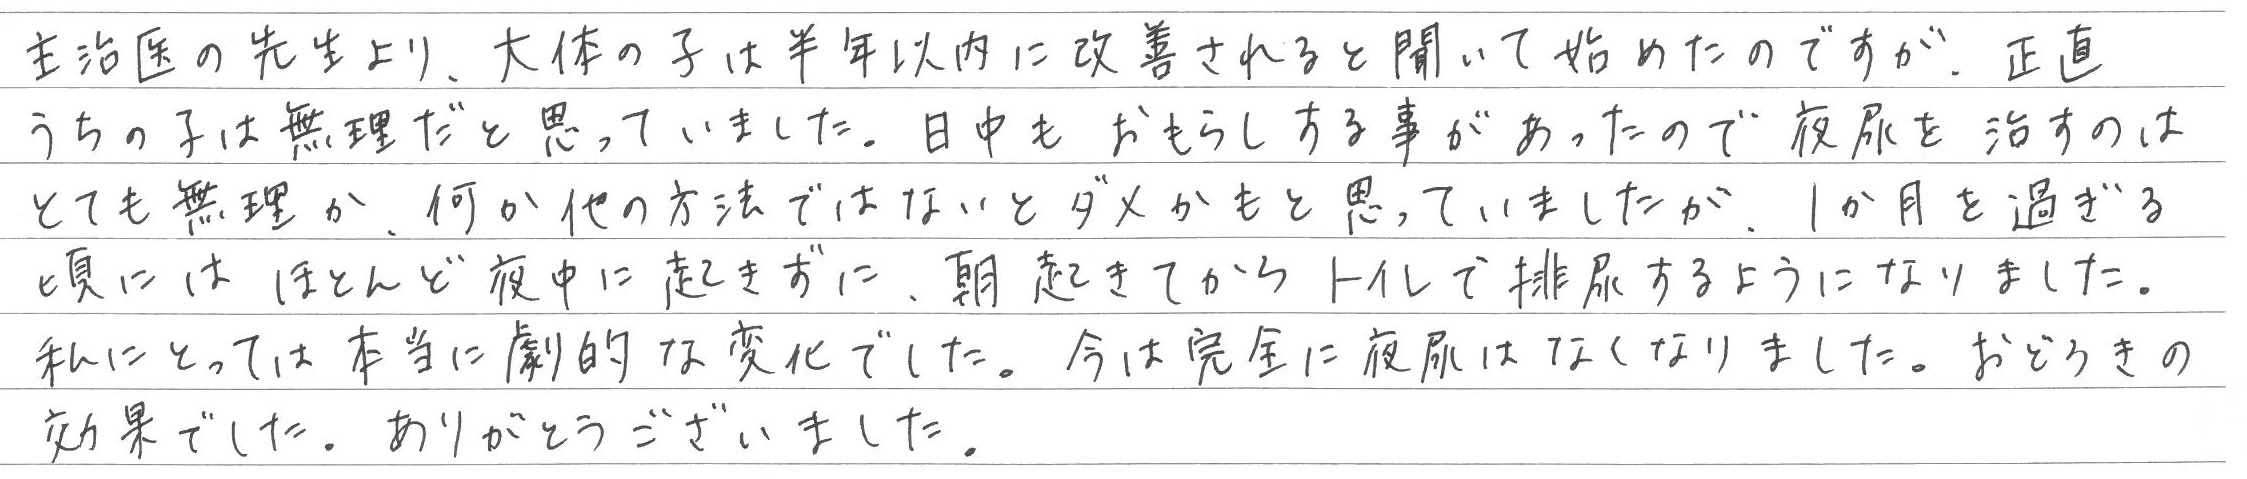 主治医の先生より、大体の子は半年以内に改善されると聞いて始めたのですが、正直
うちの子は無理だと思っていました。日中もおもらしする事があったので夜尿を治すのは
とても無理か、何か他の方法ではないとダメかもと思っていましたが、1か月を過ぎる
頃にはほとんど夜中に起きずに、朝起きてからトイレで排尿するようになりました。
私にとっては本当に劇的な変化でした。今は完全に夜尿はなくなりました。おどろきの
効果でした。ありがとうございました。